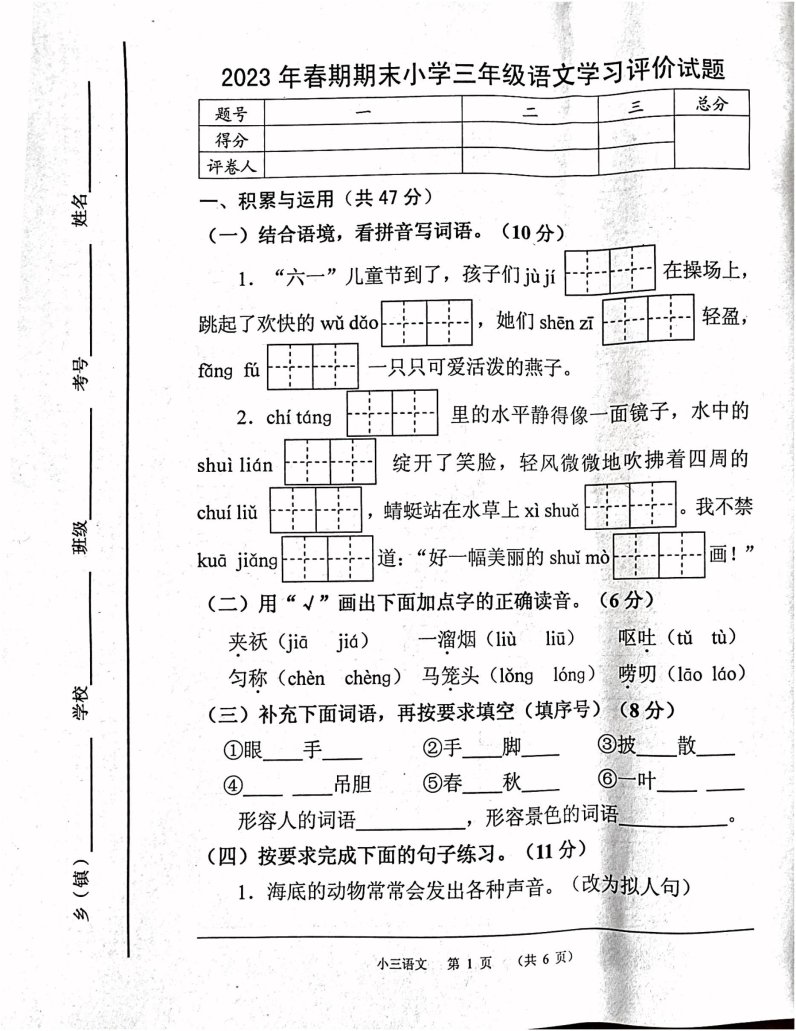 2023 年春期期末小学三年级语文学习评价试题
题号 一 二 三 总分
得分
评卷人
一、积累与运用（共 47 分）
（一）结合语境，看拼音写词语。（10 分）
1．“六一”儿童节到了，孩子们 jù jí 在操场上，
跳起了欢快的 wǔ dǎo ，她们 shēn zī 轻盈，
fǎng fú 一只只可爱活泼的燕子。
2．chí táng 里的水平静得像一面镜子，水中的
shuì lián 绽开了笑脸，轻风微微地吹拂着四周的
chuí liǔ ，蜻蜓站在水草上 xì shuǎ 。我不禁
kuā jiǎng 道：“好一幅美丽的 shuǐ mò 画！”
（二）用“√”画出下面加点字的正确读音。（6 分）
夹袄（jiā jiá） 一溜烟（liù liū） 呕吐（tǔ tù）
匀称（chèn chèng） 马笼头（lǒng lóng） 唠叨（lāo láo）
（三）补充下面词语，再按要求填空（填序号）（8 分）
①眼____手____ ②手____脚____ ③披____散____
④____ ____吊胆 ⑤春____秋____ ⑥一叶____ ____
形容人的词语__________，形容景色的词语__________。
（四）按要求完成下面的句子练习。（11 分）
1．海底的动物常常会发出各种声音。（改为拟人句）
小三语文 第 1 页 （共 6 页）
乡（镇）________ 学校________ 班级________ 考号________ 姓名________